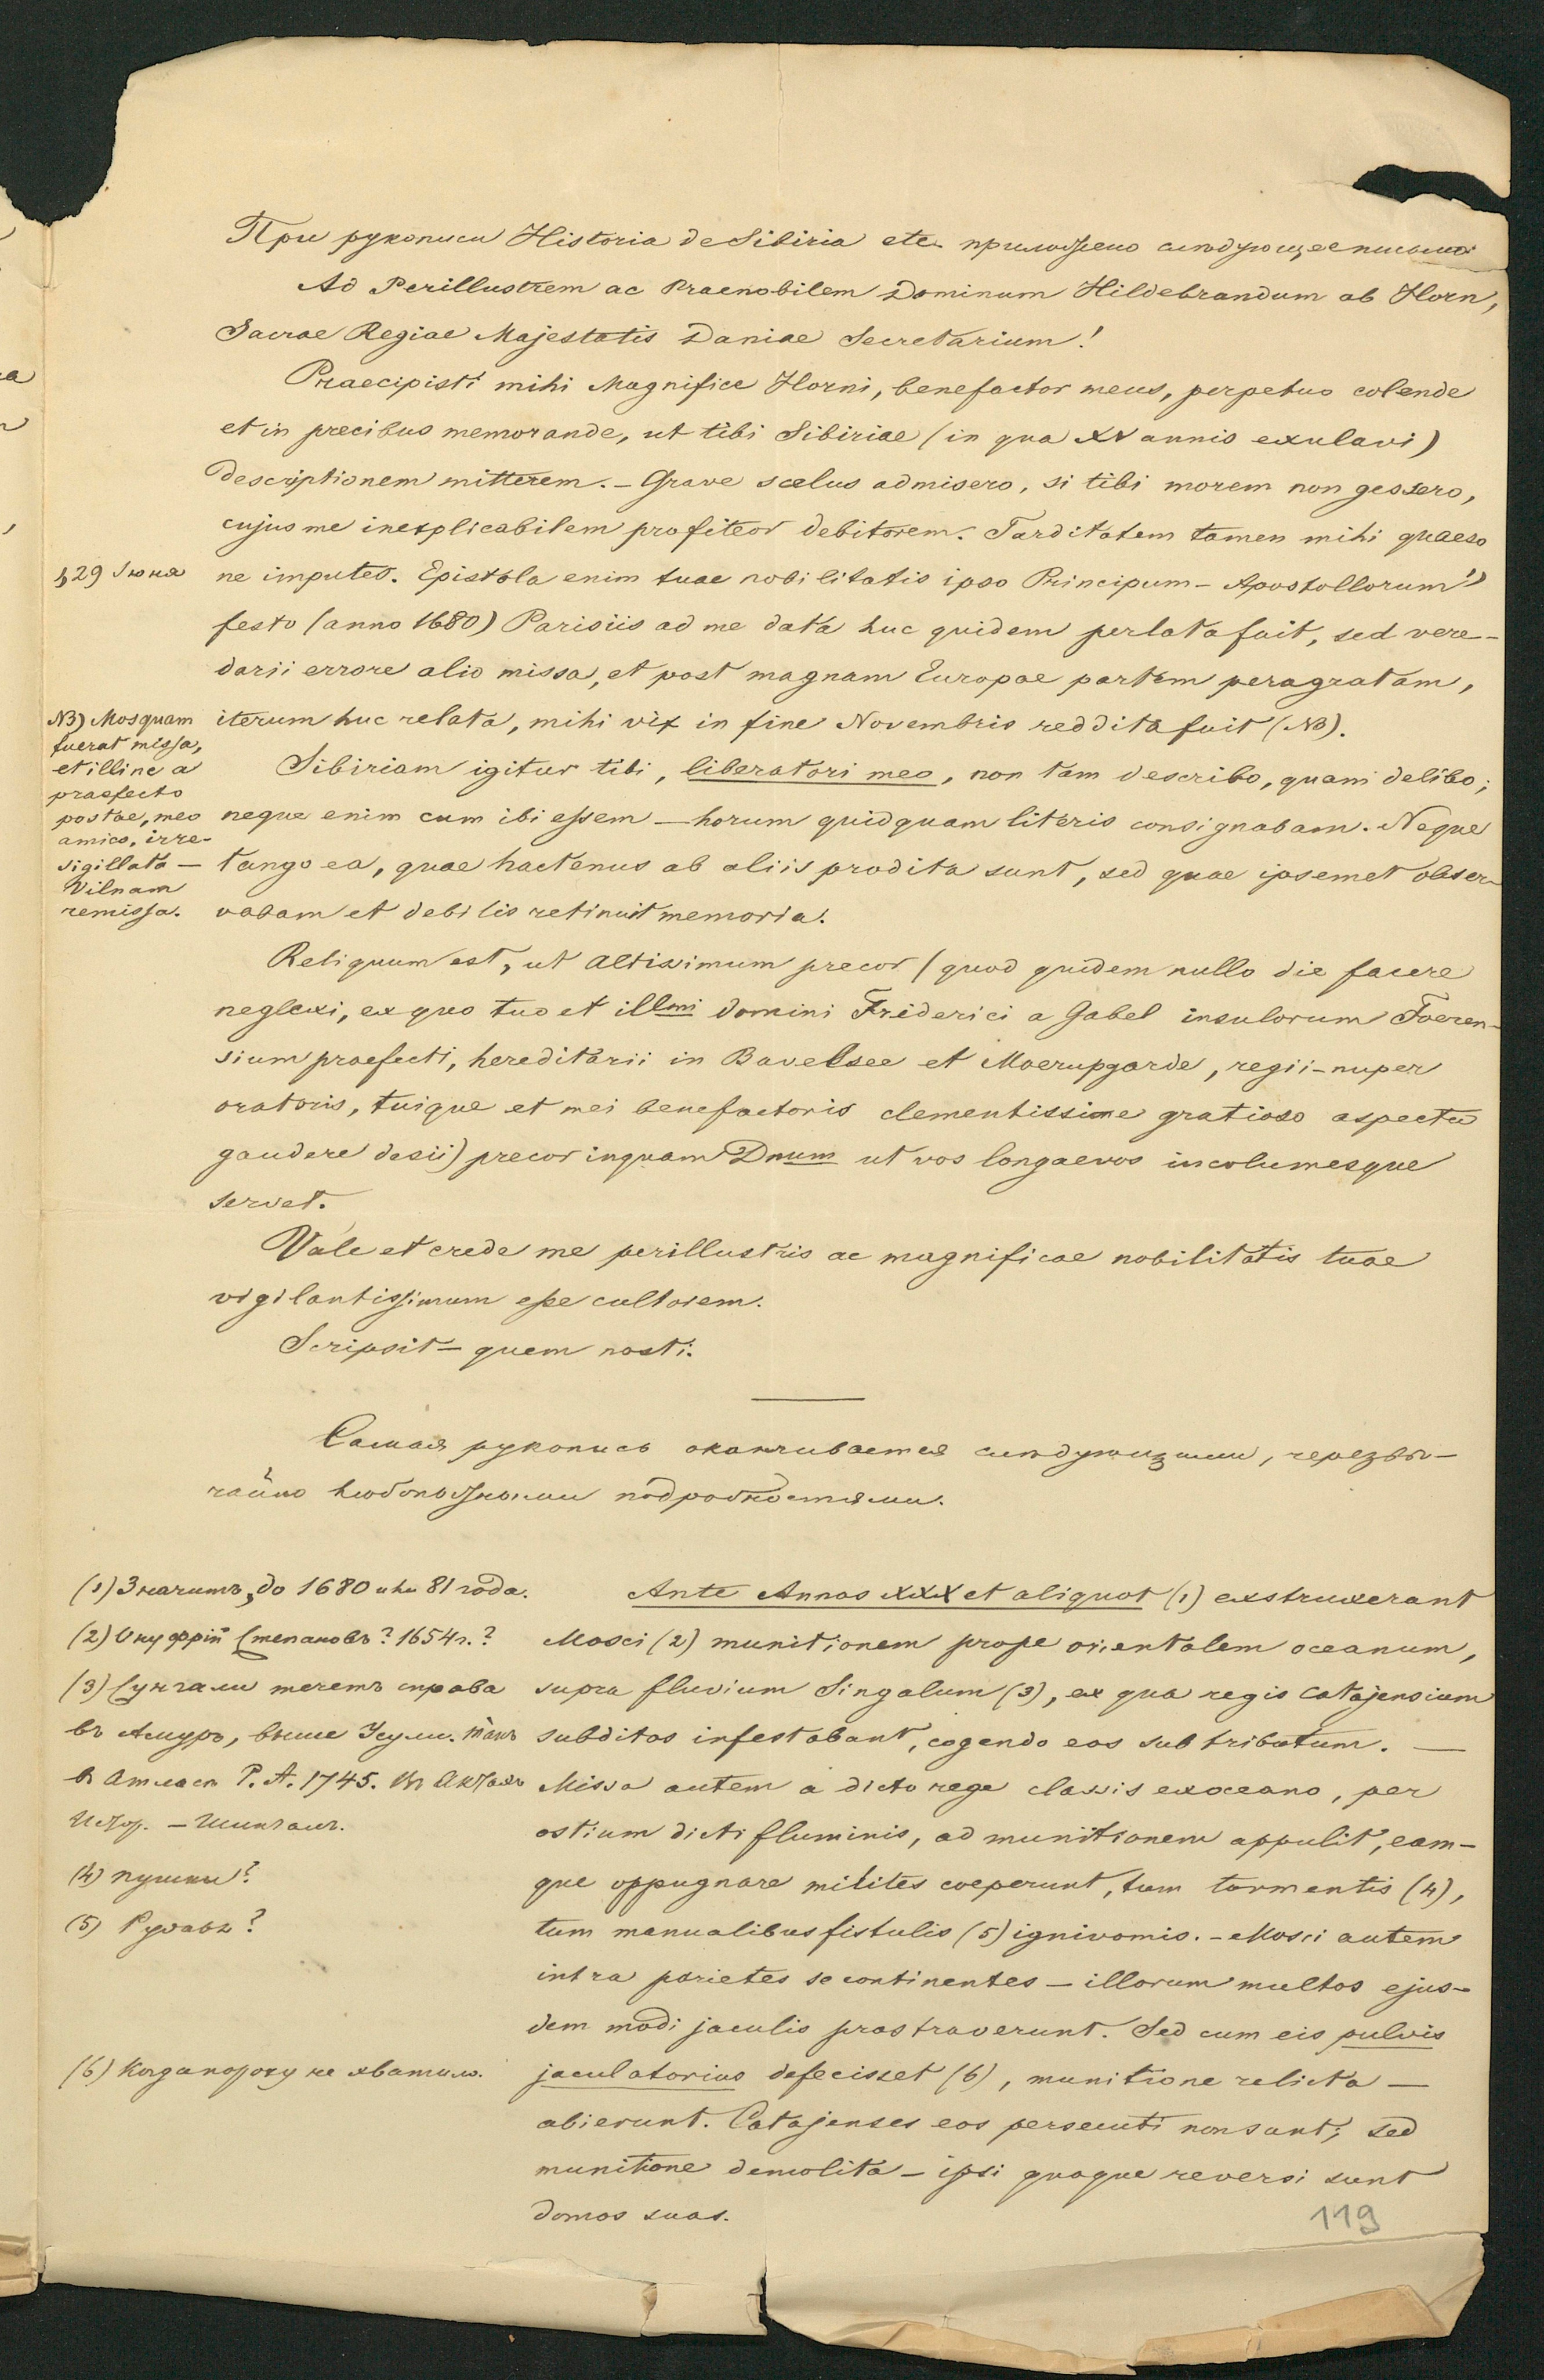 При рукописи Historia de Sibiria etc приложено слѣдующее письмо
Ad Perillustrem ac Praenobilem Dominum Hildebrandum ab Horn,
Sacrae Regiae Majestatis Daniae Secretarium!
Praecipisti mihi Magnifice Horni, benefactor meus, perpetuo colende
et in precibus memorande, ut tibi Sibiriae (in qua XV annis exulavi)
descriptionem mitterem. – Grave scelus admisero, si tibi morem non gessero,
cujus me inexplicabilem profiteor debitorem. Tarditatem tamen mihi quaeso
1) 29 Іюня
ne imputes. Epistola enim tuae nobilitatis ipso Principum – Apostollorum 1)
festo (anno 1680) Parisiis ad me data huc quidem perlata fuit, sed vere-
darii errore alio missa, et post magnam Europae partem peragratam,
iterum huc relata, mihi vix in fine Novembris reddita fuit (NB).
NB) Mosquam
fuerat missa,
et illinc a
praefecto
postae, meo
amico, irre-
sigillata –
Vilnam
remissa.
Sibiriam igitur tibi, liberatori meo, non tam describo, quam delibo;
neque enim cum ibi essem – horum quidquam literis consignabam. Neque
tango ea, quae hactenus ab aliis prodita sunt, sed quae ipsemet obser-
vabam et debilis retinuit memoria.
Reliquum est, ut Altissimum precor (quod quidem nullo die facere
neglexi, ex quo tuo et illmi domini Friderici a Gabel insulorum Foeren-
sium praefecti, hereditarii in Bavelsee et Moerupgarde, regii – nuper
oratoris, tuique et mei benefactoris clementissime gratioso aspectu
gaudere desii) precor inquam Dnum ut vos longaevos incolumesque
servet.
Vale et crede me perillustris ac magnificae nobilitatis tuae
vigilantissimum esse cultorem.
Scripsit – quem nosti.
Самая рукопись оканчивается слѣдующими, чрезвы-
чайно любопытными подробностями.
Ante Annos XXX et aliquot (1) exstruxerant
Mosci (2) munitionem prope orientalem oceanum,
supra fluvium Singalum (3), ex qua regis Catajensium
subditos infestabant, cogendo eos sub tributum. –
Missa autem a dicto rege classis ex oceano, per
ostium dicti fluminis, ad munitionem appulit, eam-
que oppugnare milites coeperunt, tum tormentis (4),
tum manualibus fistulis (5) ignivomis. – Mosci autem
intra parietes se continentes – illorum multos ejus-
dem modi jaculis prostraverunt. Sed cum eis pulvis
jaculatorius defecisset (6), munitione relicta –
abierunt. Catajenses eos persecuti non sunt; sed
munitione demolita – ipsi quoque reversi sunt
domos suas.
(1) Значитъ, до 1680 или 81 года.
(2) Онуфрій Степановъ? 1654 г.?
(3) Сунгали течетъ справа
въ Амуръ, выше Усули. Такъ
въ Атласѣ Р. А. 1745. Въ Актахъ
Истор. – Шингалъ.
(4) пушки?
(5)
(6) Когда пороху не хватило.
119